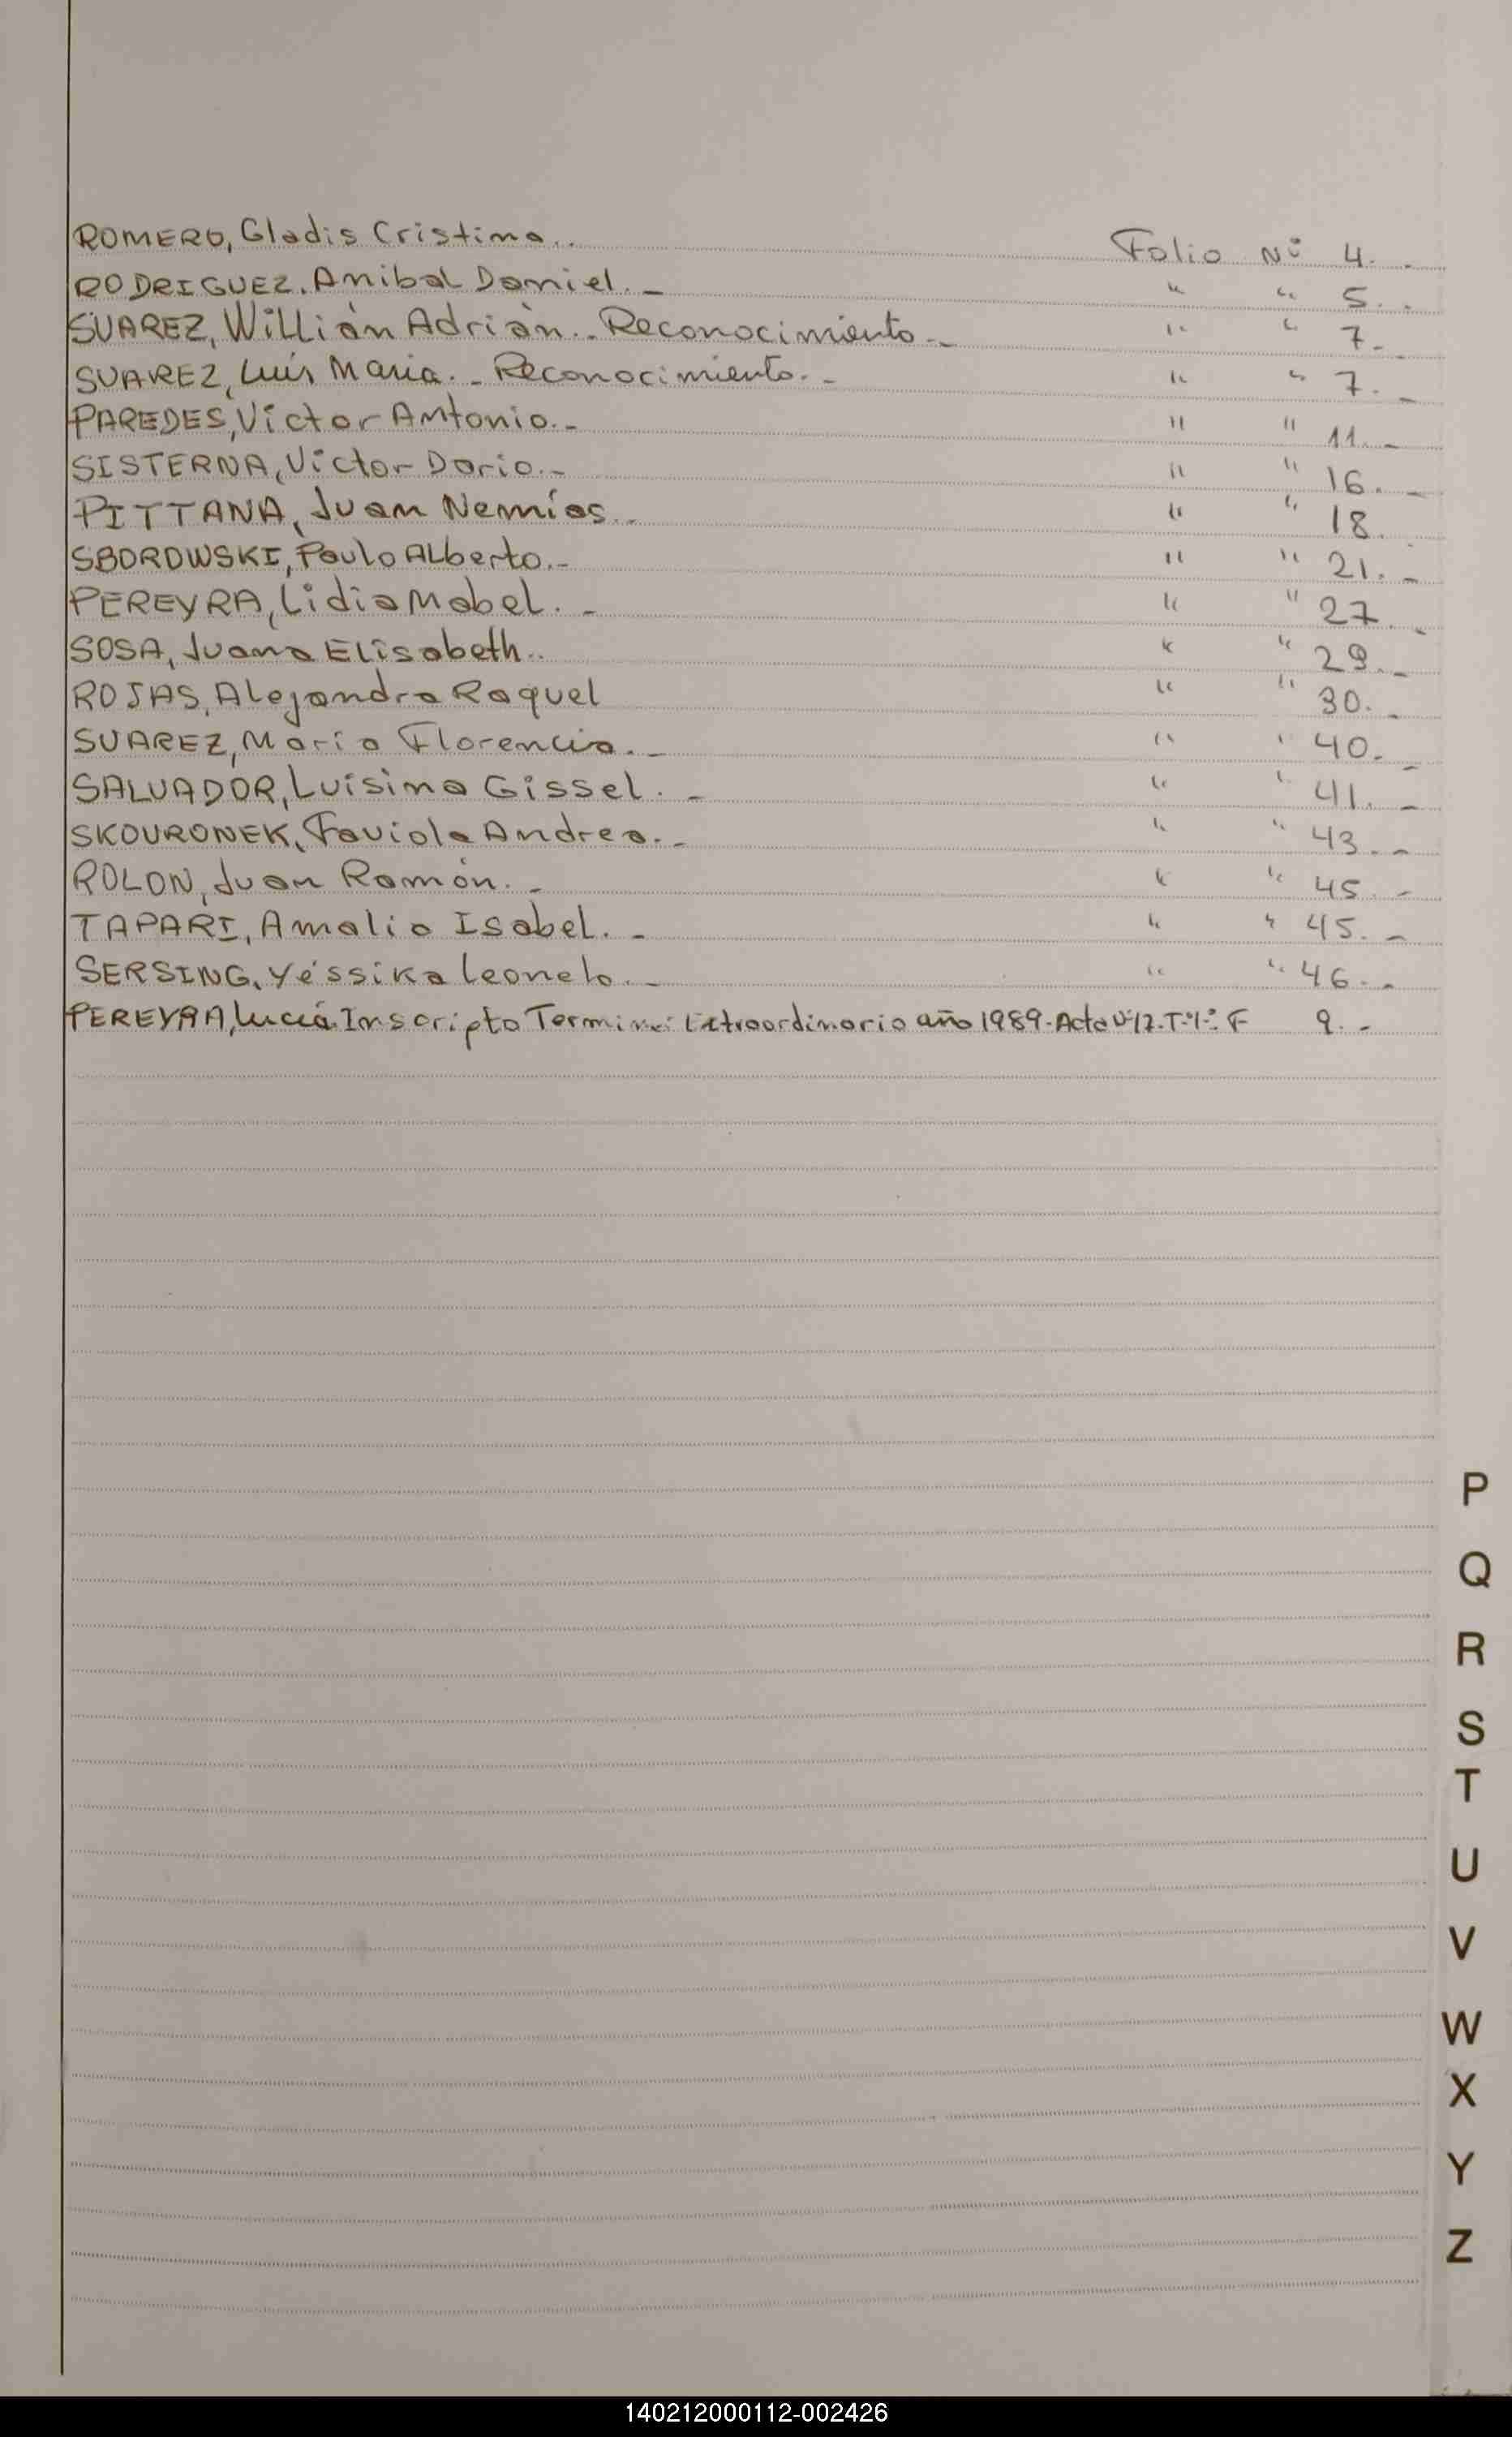 ROMERO, Gladis Cristina.. Folio Nº 4. -
RODRIGUEZ. Anibal Daniel. - " " 5. -
SUAREZ, Willián Adrián. - Reconocimiento. - " " 7. -
SUAREZ, Luís María. - Reconocimiento. - " " 7. -
PAREDES, Víctor Antonio. - " " 11. -
SISTERNA, Víctor Dario. - " " 16. -
PITTANA, Juan Nemías. - " " 18.
SBOROWSKI, Paulo Alberto. - " " 21. -
PEREYRA, Lidia Mabel. - " " 27. -
SOSA, Juana Elisabeth.. " " 29. -
ROJAS, Alejandra Raquel " " 30. -
SUAREZ, María Florencia. - " " 40. -
SALVADOR, Luisina Gissel. - " " 41. -
SKOURONEK, Faviola Andrea. - " " 43. -
ROLON, Juan Ramón. - " " 45. -
TAPARI, Amalia Isabel. - " " 45. -
SERSING, Yéssika Leonela. - " " 46. -
PEREYRA, Lucía. Inscripto Extraordinario año 1989. Acta Nº 12. T. 1º F 9. -
P
Q
R
S
T
U
V
W
X
Y
Z
140212000112-002426